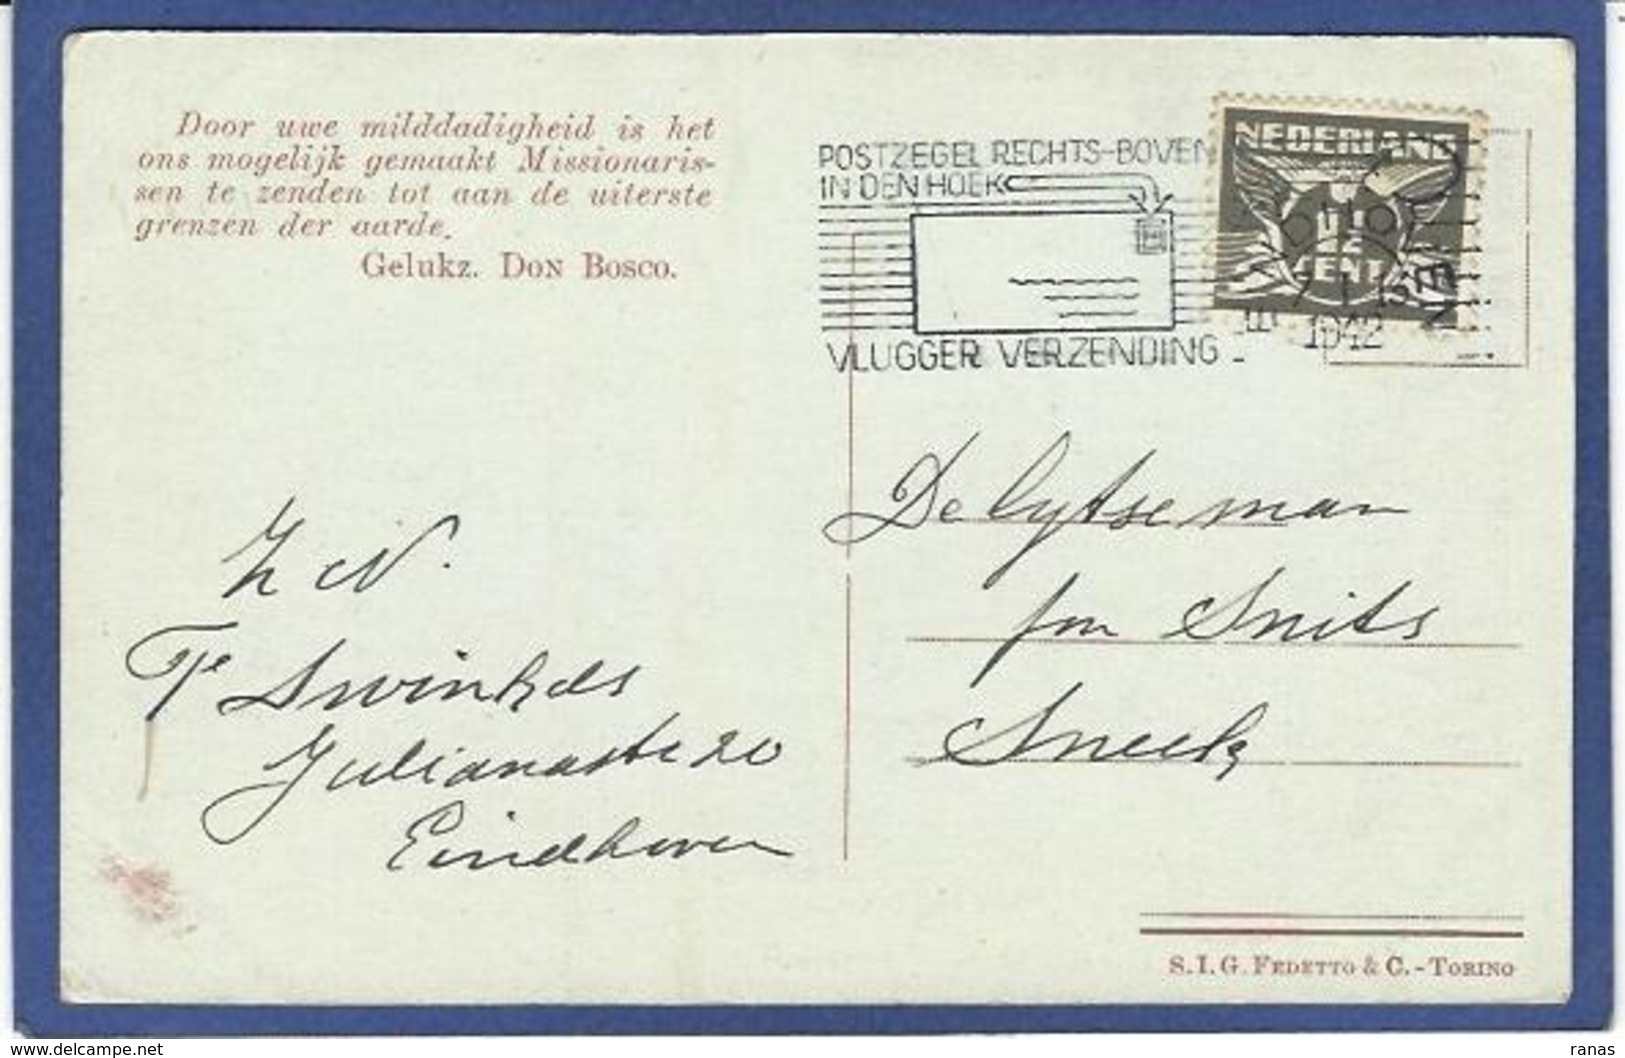 Door uwe milddadigheid is het
ons mogelijk gemaakt Missionaris-
sen te zenden tot aan de uiterste
grenzen der aarde.
Gelukz. Don Bosco.
POSTZEGEL RECHTS-BOVEN
IN DEN HOEK
VLUGGER VERZENDING
NEDERLAND
CENT
1942
De lytse man
fon Snits
Sneek
Z N.
Swinkels
Julianastr 20
Eindhoven
S.I.G. Fedetto & C. - Torino
www.delcampe.net
ranas